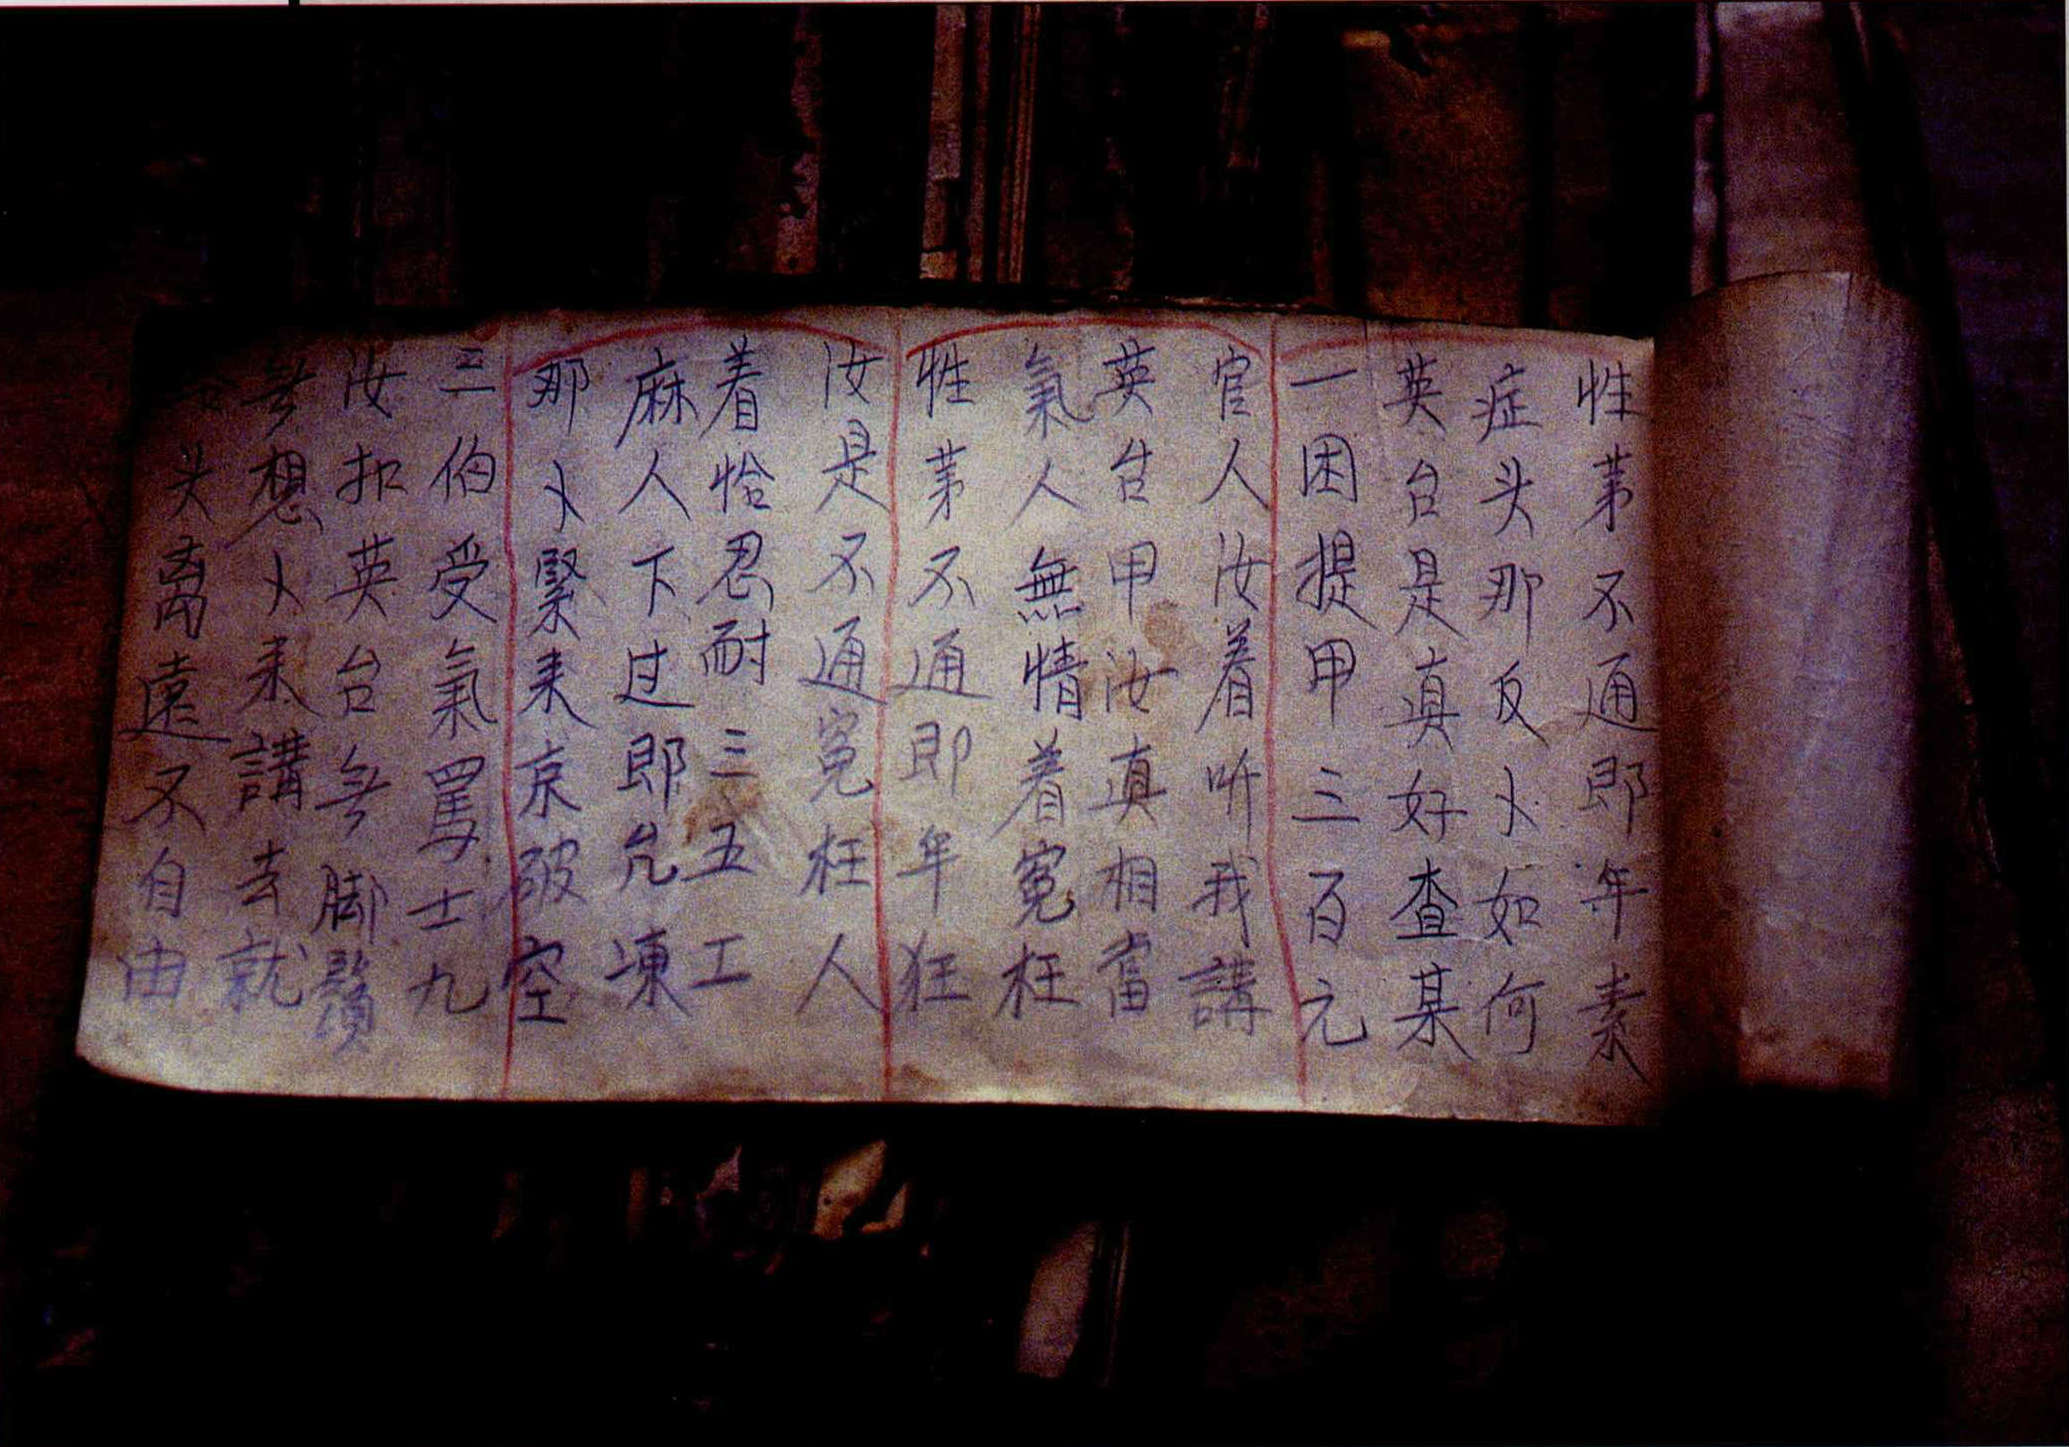 性第不通郎年素
症头那反卜如何
英台是真好查某
一困提甲三百元
官人汝着听我講
英台甲汝真相當
氣人無情着冤枉
性第不通郎年狂
汝是不通冤枉人
着恰忍耐三五工
麻人下过郎允凍
那卜緊来京破空
三伯受氣罵士九
汝扣英台兮脚鬚
兮想卜来講去就
头离遠不自由